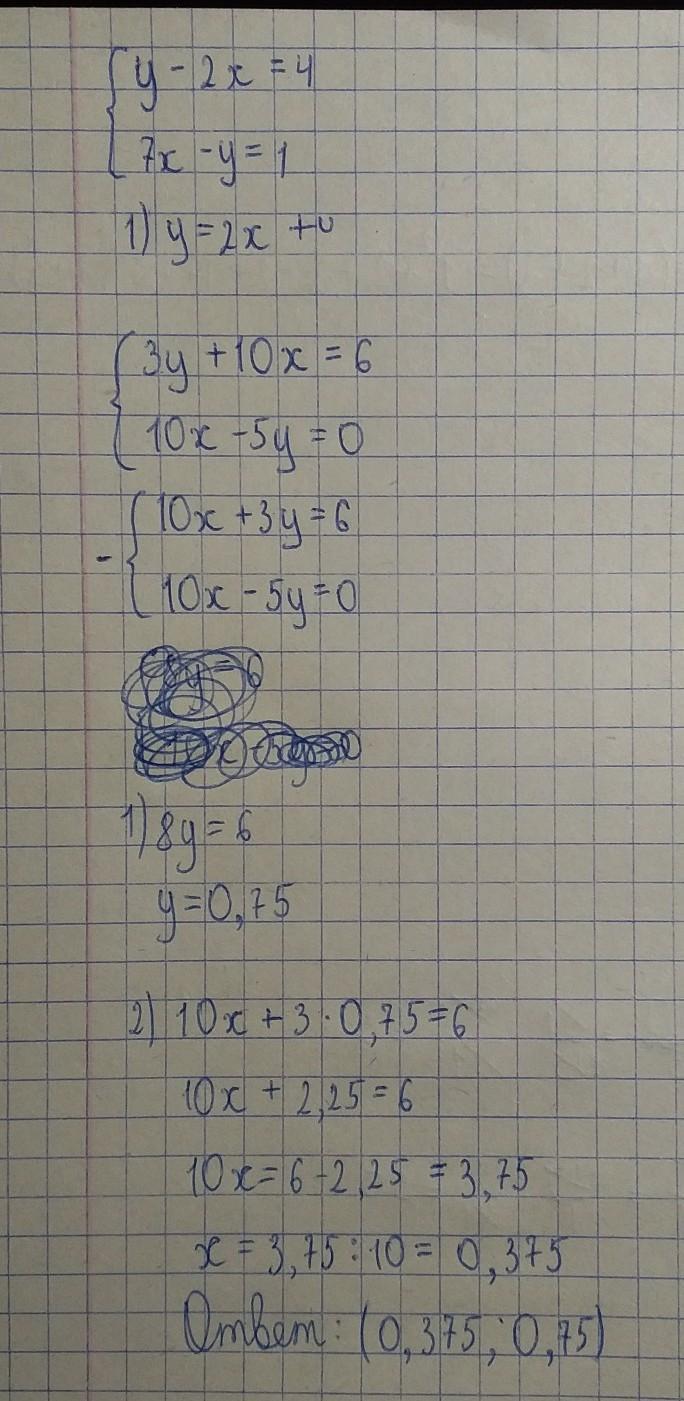 y - 2x = 4
7x - y = 1
1) y = 2x + 4
3y + 10x = 6
10x - 5y = 0
- 10x + 3y = 6
10x - 5y = 0
1) 8y = 6
y = 0,75
2) 10x + 3 · 0,75 = 6
10x + 2,25 = 6
10x = 6 - 2,25 = 3,75
x = 3,75 : 10 = 0,375
Ответ: (0,375; 0,75)